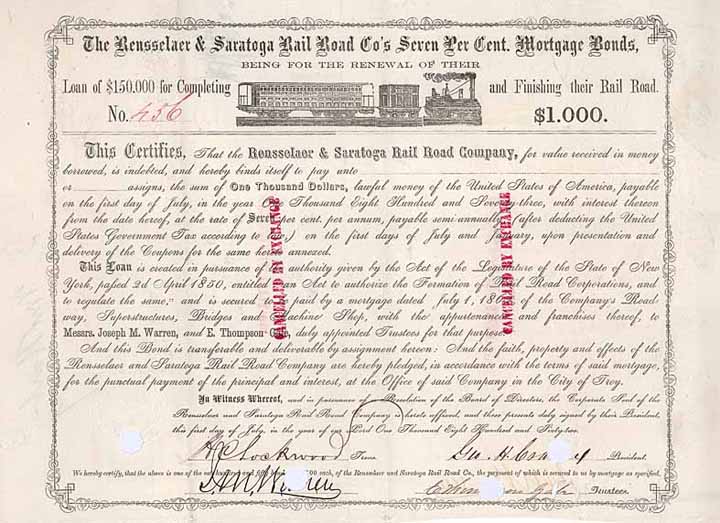 The Rensselaer & Saratoga Rail Road Co's Seven Per Cent. Mortgage Bonds,
BEING FOR THE RENEWAL OF THEIR
Loan of $150.000 for Completing and Finishing their Rail Road.
No. 456 $1.000.
This Certifies, That the Rensselaer & Saratoga Rail Road Company, for value received in money
borrowed, is indebted, and hereby binds itself to pay unto
or assigns, the sum of One Thousand Dollars, lawful money of the United States of America, payable
on the first day of July, in the year One Thousand Eight Hundred and Seventy-three, with interest thereon
from the date hereof, at the rate of Seven per cent. per annum, payable semi-annually (after deducting the United
States Government Tax according to ) on the first days of July and January, upon presentation and
delivery of the Coupons for the same hereto annexed.
This Loan is created in pursuance of the authority given by the Act of the Legislature of the State of New
York, passed 2d April 1850, entitled "An Act to authorize the Formation of Rail Road Corporations, and
to regulate the same," and is secured to be paid by a mortgage dated July 1, of the Company's Road-
way, Superstructures, Bridges and Machine Shop, with the appurtenances and franchises thereof, to
Messrs. Joseph M. Warren, and E. Thompson Gale, duly appointed Trustees for that purpose.
And this Bond is transferable and deliverable by assignment hereon: And the faith, property and effects of the
Rensselaer and Saratoga Rail Road Company are hereby pledged, in accordance with the terms of said mortgage,
for the punctual payment of the principal and interest, at the Office of said Company in the City of Troy.
In Witness Whereof, and in pursuance of a Resolution of the Board of Directors, the Corporate Seal of the
Rensselaer and Saratoga Rail Road Company is hereto affixed, and these presents duly signed by their President,
this first day of July, in the year of our Lord One Thousand Eight Hundred and
Lockwood Treas. Geo. H. President.
We hereby certify, that the above is one of the one hundred and fifty each, of the Rensselaer and Saratoga Rail Road Co., the payment of which is secured to us by mortgage as specified.
J. M. Warren Gale Trustees.
CANCELLED BY EXCHANGE
CANCELLED BY EXCHANGE